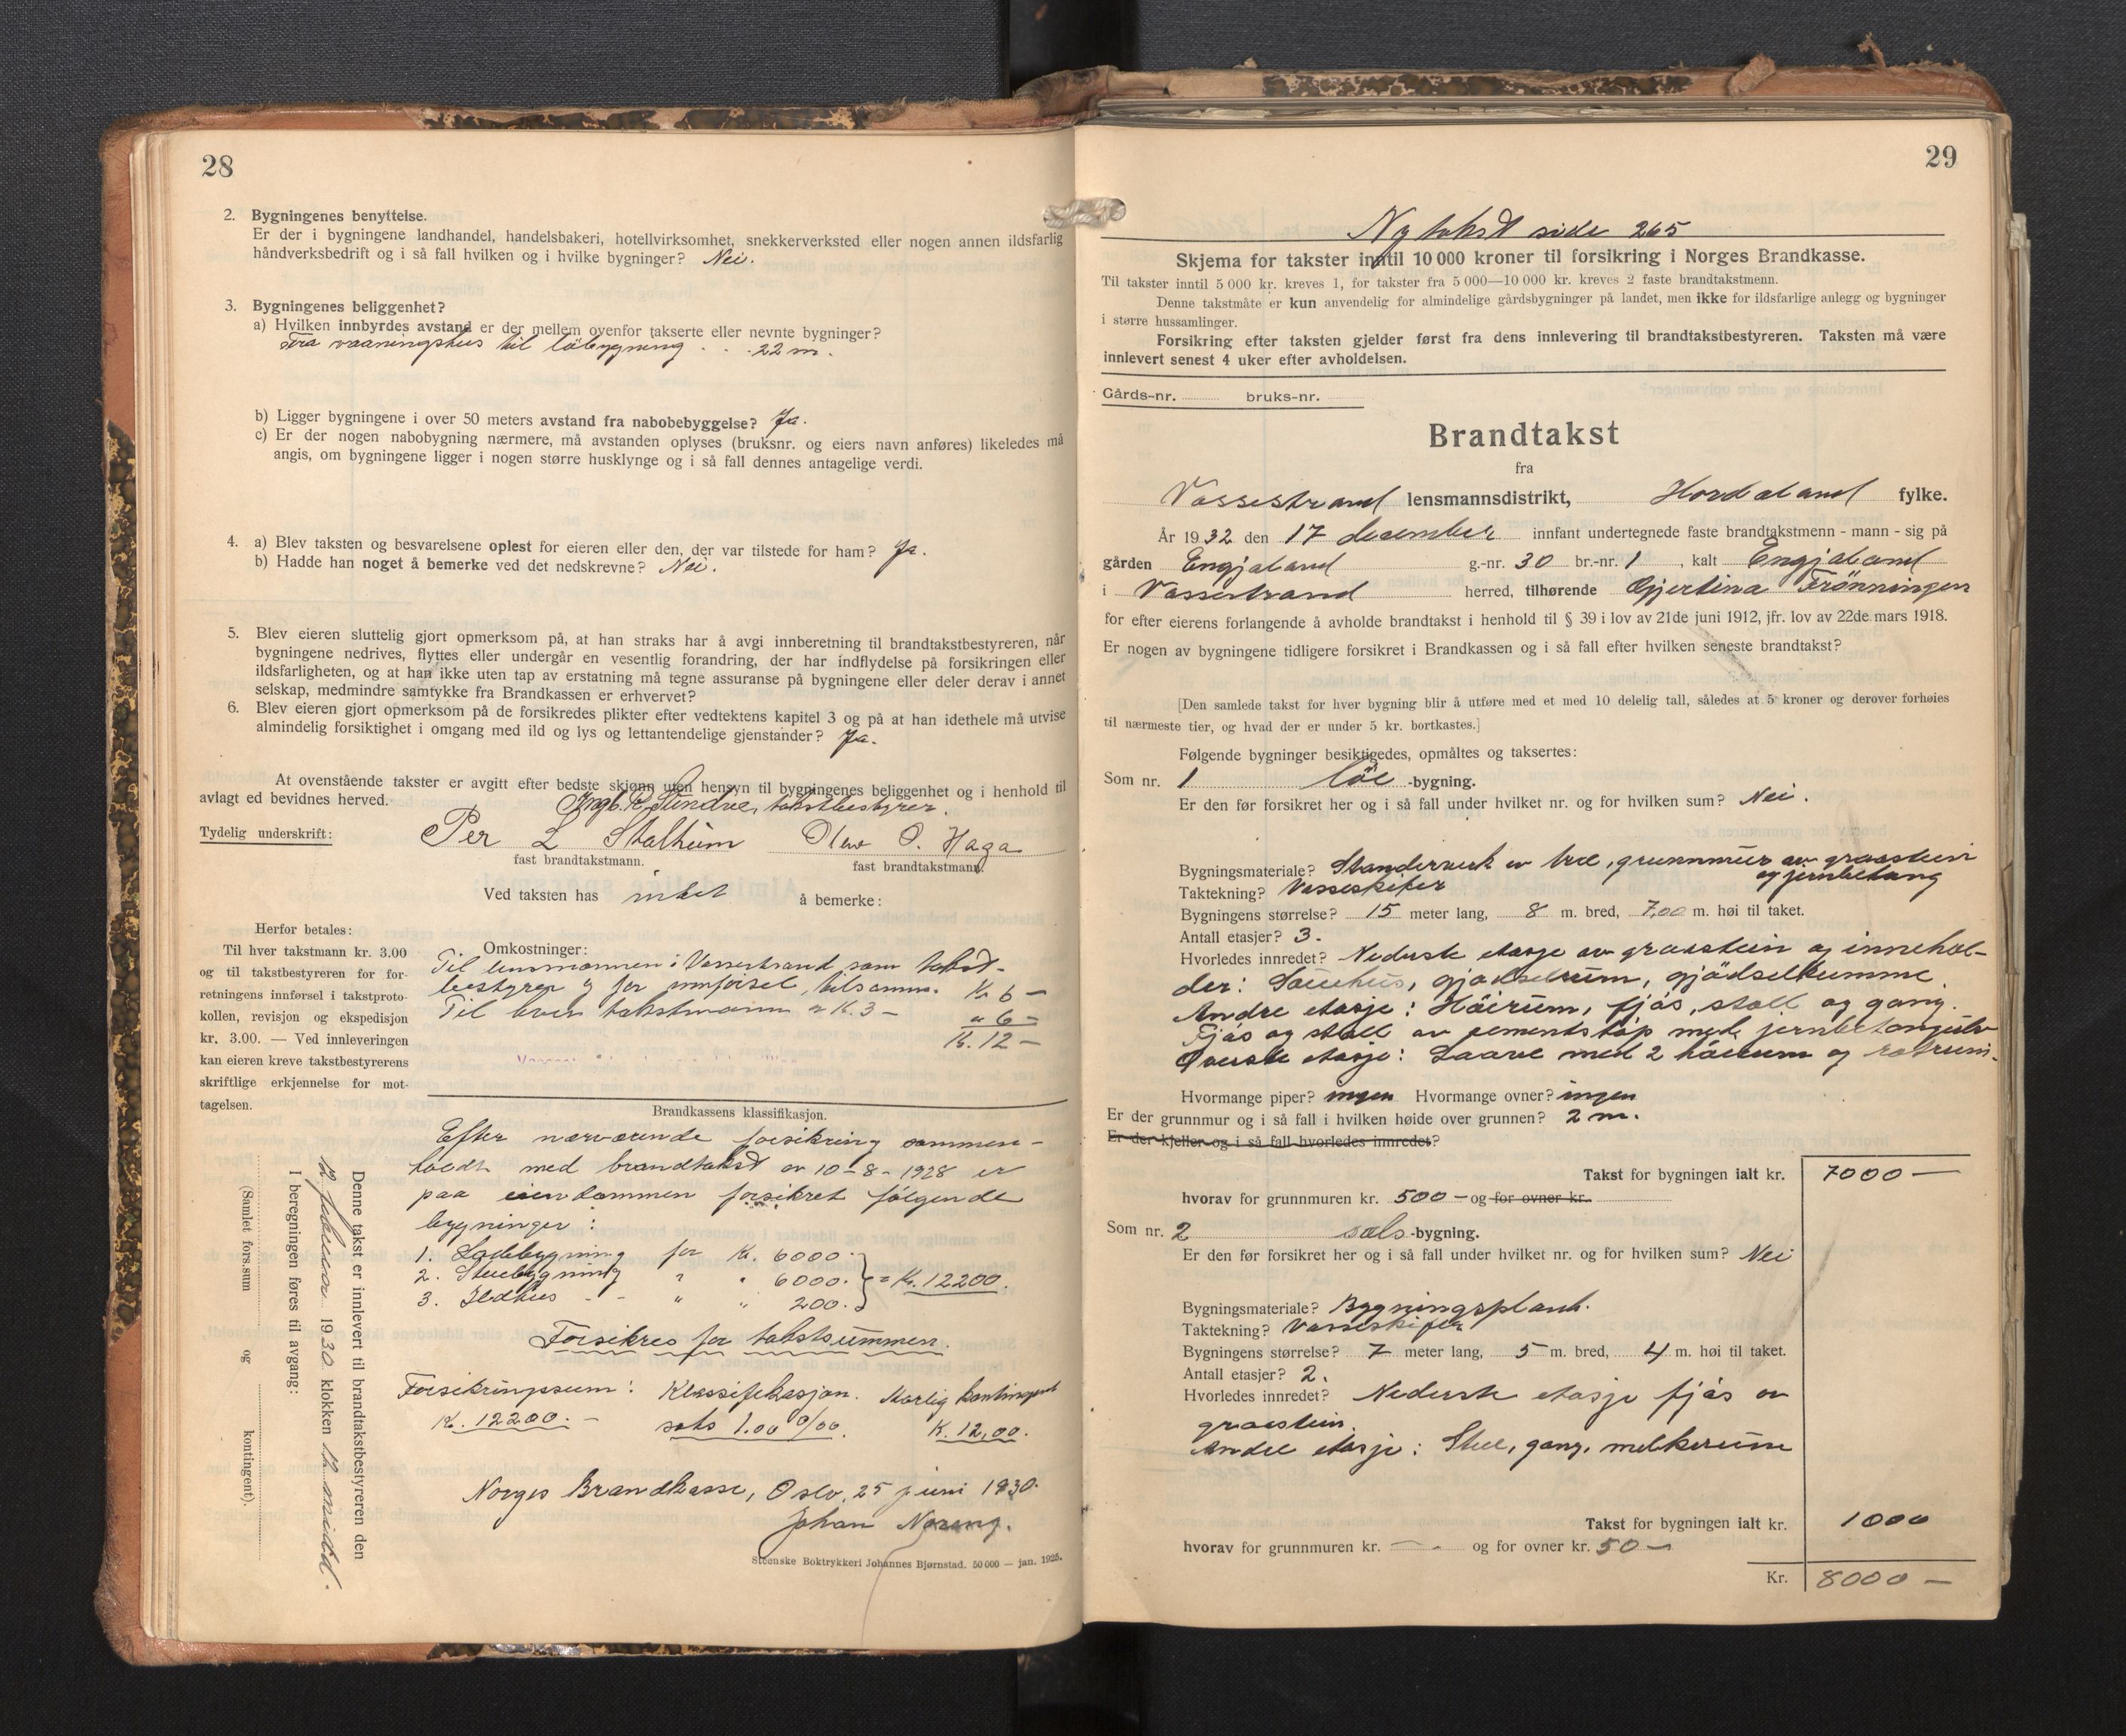 28
2. Bygningenes benyttelse.
Er der i bygningene landhandel, handelsbakeri, hotellvirksomhet, snekkerverksted eller nogen annen ildsfarlig
håndverksbedrift og i så fall hvilken og i hvilke bygninger? Nei.
3. Bygningenes beliggenhet?
a) Hvilken innbyrdes avstand er der mellem ovenfor takserte eller nevnte bygninger?
Fra vaaningshus til løbygning . . . 22 m.
b) Ligger bygningene i over 50 meters avstand fra nabobebyggelse? Ja.
c) Er der nogen nabobygning nærmere, må avstanden oplyses (bruksnr. og eiers navn anføres) likeledes må
angis, om bygningene ligger i nogen større husklynge og i så fall dennes antagelige verdi.
4. a) Blev taksten og besvarelsene oplest for eieren eller den, der var tilstede for ham? Ja.
b) Hadde han noget å bemerke ved det nedskrevne? Nei.
5. Blev eieren sluttelig gjort opmerksom på, at han straks har å avgi innberetning til brandtakstbestyreren, når
bygningene nedrives, flyttes eller undergår en vesentlig forandring, der har indflydelse på forsikringen eller
ildsfarligheten, og at han ikke uten tap av erstatning må tegne assuranse på bygningene eller deler derav i annet
selskap, medmindre samtykke fra Brandkassen er erhvervet?
6. Blev eieren gjort opmerksom på de forsikredes plikter efter vedtektens kapitel 3 og på at han idethele må utvise
almindelig forsiktighet i omgang med ild og lys og lettantendelige gjenstander? Ja.
At ovenstående takster er avgitt efter bedste skjønn uten hensyn til bygningenes beliggenhet og i henhold til
avlagt ed bevidnes herved.
takstbestyrer.
Tydelig underskrift: Per L Stalheim Olav O. Haga
fast brandtakstmann. fast brandtakstmann.
Ved taksten has intet å bemerke:
Herfor betales:
Til hver takstmann kr. 3.00
og til takstbestyreren for for-
retningens innførsel i takstproto-
kollen, revisjon og ekspedisjon
kr. 3.00. — Ved innleveringen
kan eieren kreve takstbestyrerens
skriftlige erkjennelse for mot-
tagelsen.
Omkostninger:
Til lensmannen i Vossestrand som takst-
bestyrer og for innførsel, tilsamm. Kr 6 —
Til hver takstmann a K. 3 — " 6 —
K. 12 —
Brandkassens klassifikasjon.
Efter nærværende forsikring sammen-
holdt med brandtakst av 10-8-1928 er
paa eiendommen forsikret følgende
bygninger:
1. Ladebygning for Kr. 6000.
2. Stuebygning " " 6000. = Kr. 12200.
3. Ildhus - - " " 200.
Forsikres for takstsummen.
Forsikringssum: Klassifikasjon. Aarlig kontingent
K. 12200. — sats 1.00 0/00. K. 12,00.
Norges Brandkasse, Oslo, 25 juni 1930.
Johan
Steenske Boktrykkeri Johannes Bjørnstad. 50 000 — jan. 1925.
Denne takst er innlevert til brandtakstbestyreren den
12 februar 1930 klokken 12 middd.
I beregningen føres til avgang:
(Samlet fors.sum og kontingent).
29
Ny takst side 265
Skjema for takster inntil 10 000 kroner til forsikring i Norges Brandkasse.
Til takster inntil 5 000 kr. kreves 1, for takster fra 5 000—10 000 kr. kreves 2 faste brandtakstmenn.
Denne takstmåte er kun anvendelig for almindelige gårdsbygninger på landet, men ikke for ildsfarlige anlegg og bygninger
i større hussamlinger.
Forsikring efter taksten gjelder først fra dens innlevering til brandtakstbestyreren. Taksten må være
innlevert senest 4 uker efter avholdelsen.
Gårds-nr. bruks-nr.
Brandtakst
fra
Vossestrand lensmannsdistrikt, Hordaland fylke.
År 1932 den 17 december innfant undertegnede faste brandtakstmenn - mann - sig på
gården Engjaland g.-nr. 30 br.-nr. 1, kalt Engjaland
i Vossestrand herred, tilhørende Gjertina Trønningen
for efter eierens forlangende å avholde brandtakst i henhold til § 39 i lov av 21de juni 1912, jfr. lov av 22de mars 1918.
Er nogen av bygningene tidligere forsikret i Brandkassen og i så fall efter hvilken seneste brandtakst?
[Den samlede takst for hver bygning blir å utføre med et med 10 delelig tall, således at 5 kroner og derover forhøies
til nærmeste tier, og hvad der er under 5 kr. bortkastes.]
Følgende bygninger besiktigedes, opmåltes og taksertes:
Som nr. 1 løe -bygning.
Er den før forsikret her og i så fall under hvilket nr. og for hvilken sum? Nei.
Bygningsmateriale? Standerverk av træ, grunnmur av graastein
og jernbetong
Taktekning? Vosseskifer
Bygningens størrelse? 15 meter lang, 8 m. bred, 7,00 m. høi til taket.
Antall etasjer? 3.
Hvorledes innredet? Nederste etasje av graastein og innehol-
der: Sauehus, gjødselrum, gjødselkumme
Andre etasje: Høirum, fjøs, stall og gang.
Fjøs og stall av sementstøp med jernbetongulv
Øverste etasje: Laave med 2 høirum og
Hvormange piper? ingen Hvormange ovner? ingen
Er der grunnmur og i så fall i hvilken høide over grunnen? 2 m.
Er der kjeller og i så fall hvorledes innredet?
Takst for bygningen ialt kr. 7000 —
hvorav for grunnmuren kr. 500 — og for ovner kr.
Som nr. 2 sels -bygning.
Er den før forsikret her og i så fall under hvilket nr. og for hvilken sum? Nei
Bygningsmateriale? Bygningsplank.
Taktekning? Vosseskifer
Bygningens størrelse? 7 meter lang, 5 m. bred, 4 m. høi til taket.
Antall etasjer? 2.
Hvorledes innredet? Nederste etasje fjøs av
graastein.
Andre etasje: Stue, gang, melkerum
Takst for bygningen ialt kr. 1000
hvorav for grunnmuren kr. — og for ovner kr. 50 —
Kr. 8000 —